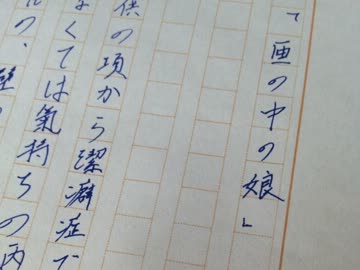 「画の中の娘」
供の頃から潔癖症で
なくては氣持ちの
の、